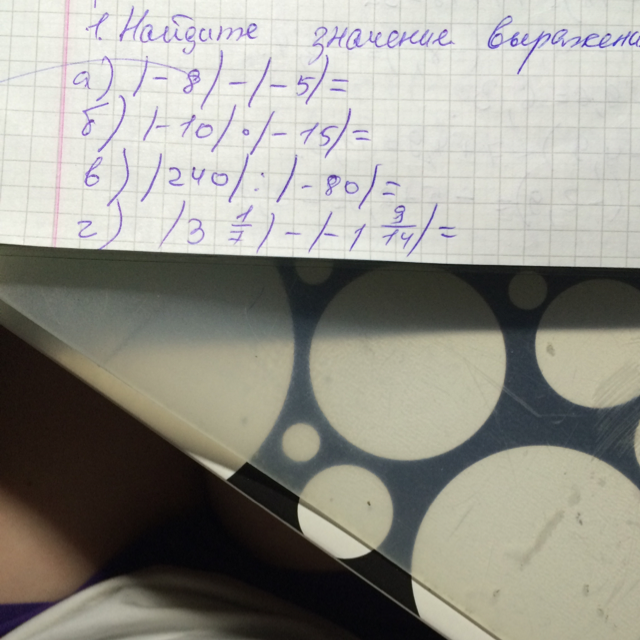 1. Найдите значение выражени
а) |-8|-|-5|=
б) |-10|•|-15|=
в) |240|:|-80|=
г) |3 1/7|-|-1 9/14|=